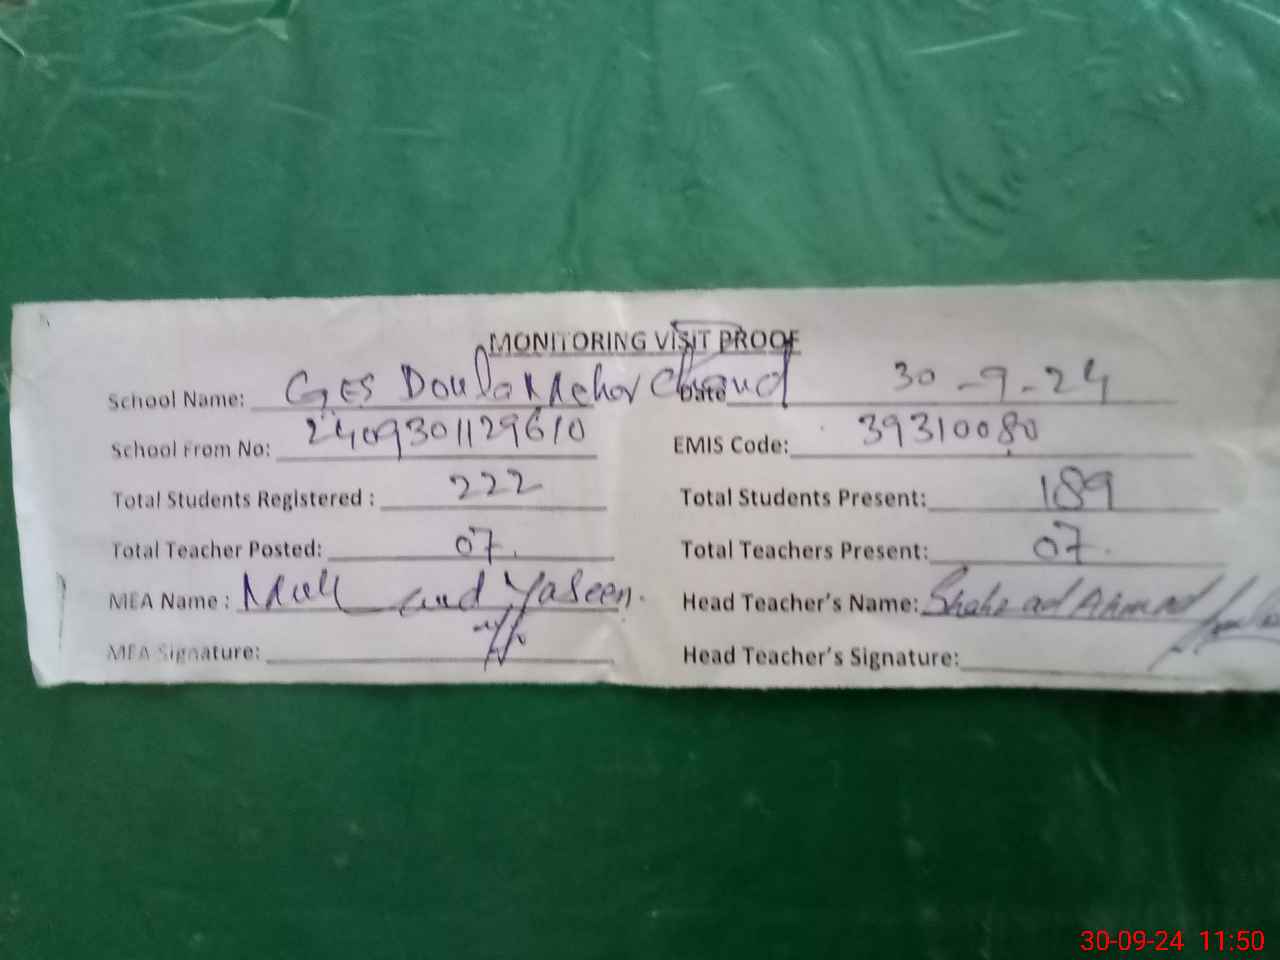 MONITORING VISIT PROOF
School Name: GES Doula Mehar Chand Date 30-9-24
School From No: 2409301129610 EMIS Code: 39310080
Total Students Registered : 222 Total Students Present: 189
Total Teacher Posted: 07. Total Teachers Present: 07.
MEA Name : Yaseen. Head Teacher's Name: Shahzad Ahmad
MEA Signature: Head Teacher's Signature:
30-09-24 11:50